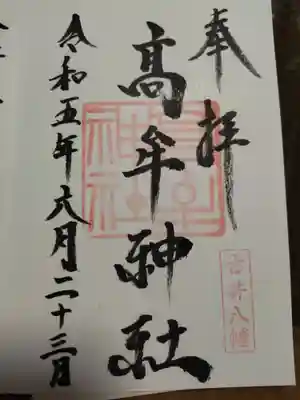 奉拝
高牟神社
令和五年六月二十三日
古井八幡